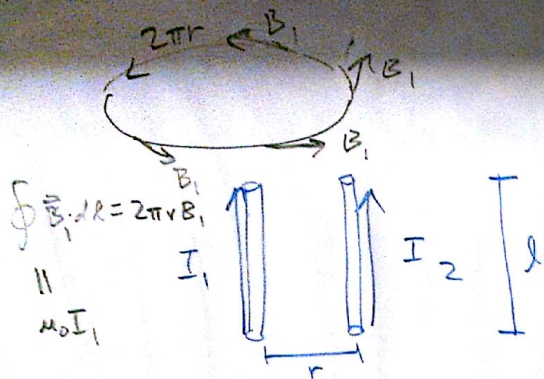 2πr
B₁
B₁
B₁
B₁
∮B⃗₁·dl = 2πrB₁
||
μ₀I₁
I₁
I₂
l
r